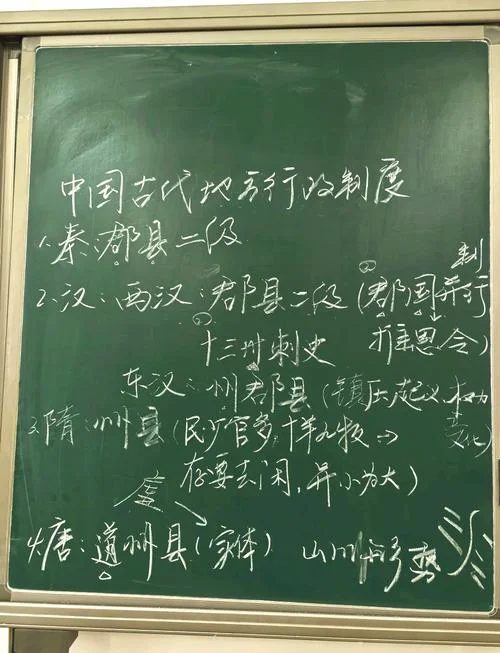 中国古代地方行政制度
1、秦:郡县二级
2、汉:两汉:郡县二级(②郡国并行制
①十三州刺史 推恩令)
东汉:州郡县(镇压起义,权力变化)
3、隋:州县(民少官多,十羊九牧→
存要去闲,并小为大)
虚
4、唐:道州县(实体) 山川形势